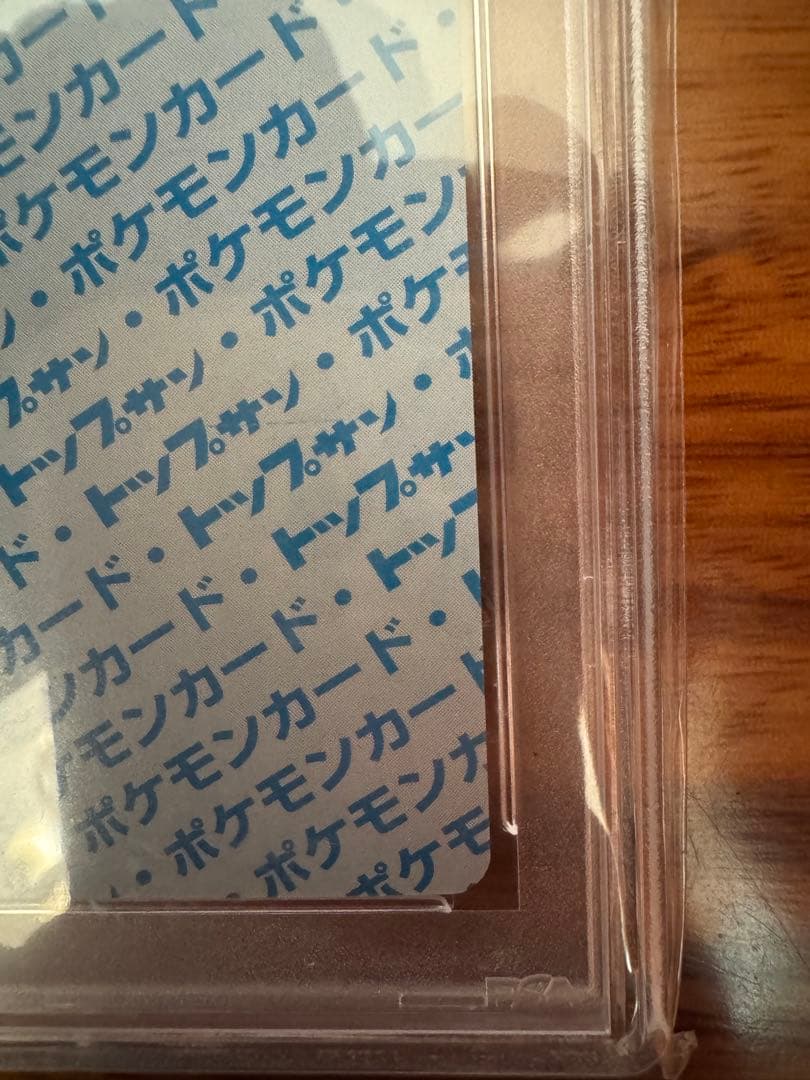 ンカー
モンカード
ポケモンカード
ン・ポケモンカード・
プサン・ポケモンカー
トップサン・ポケモン
ド・トップサン・ポケ
カード・トップサン・
ンカード・トップサ
モンカード・トッ
ポケモンカード・
・ポケモンカー
・ポケモンカ
ポケモ
PSA